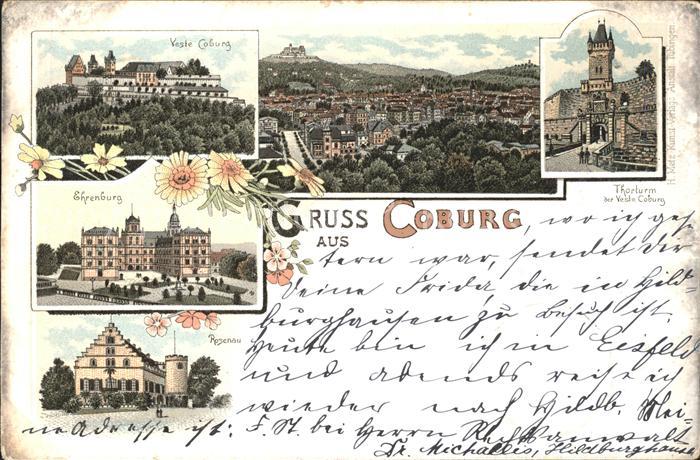 Veste Coburg
Thorturm
der Veste Coburg
Ehrenburg
Rosenau
GRUSS
AUS
COBURG
, wo ich ges-
tern war, sendet dir
deine Frida, die in Hild-
burghausen zu Besuch ist.
Heute bin ich in Eisfeld
und abends reise ich
wieder nach Hildb. Mei-
ne Adresse ist: F. St. bei Herrn Rechtsanwalt
Dr. Michaelis, Hildburghausen